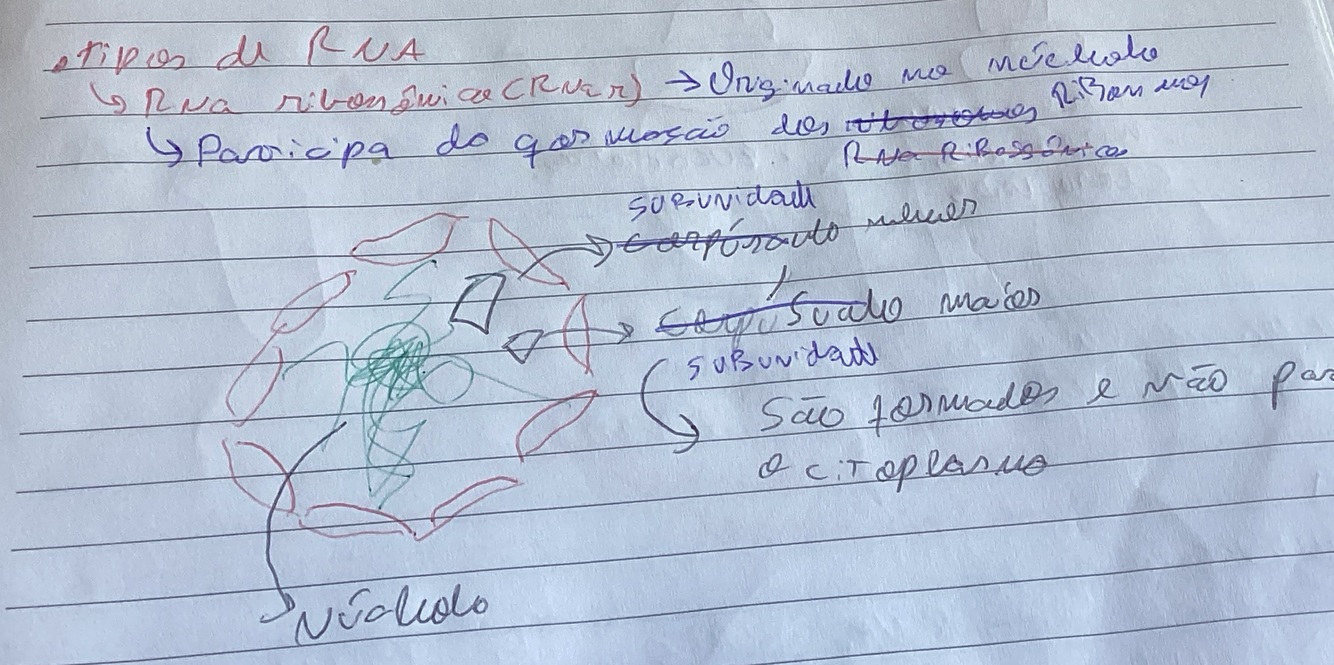 tipos de RNA
↳ RNA ribossômico (RNAr) → Originado no núcleolo
↳ Participa da formação dos Ribossomos
RNA Ribossômico
SUBUNIDADE
menor
maior
SUBUNIDADE
São formados e vão par
o citoplasma
Núcleolo